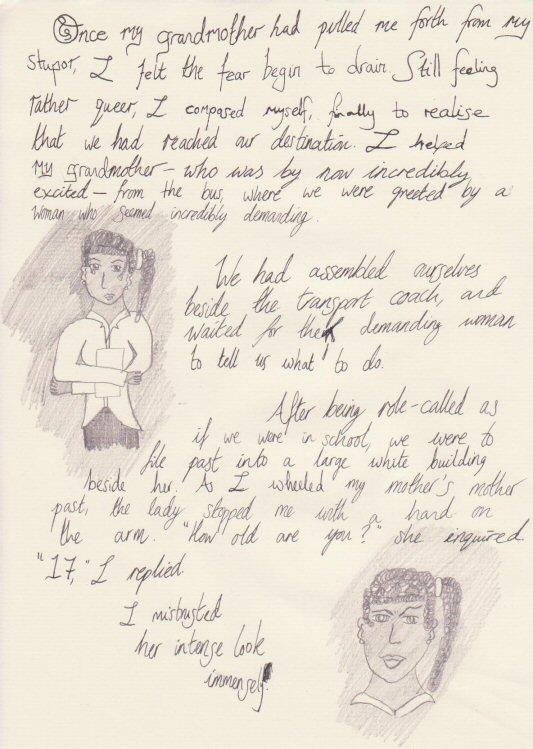 Once my grandmother had pulled me forth from my
stupor, I felt the fear begin to drain. Still feeling
rather queer, I composed myself, finally to realise
that we had reached our destination. I helped
my grandmother – who was by now incredibly
excited – from the bus, where we were greeted by a
woman who seemed incredibly demanding.
We had assembled ourselves
beside the transport coach, and
waited for the demanding woman
to tell us what to do.
After being role-called as
if we were in school, we were to
file past into a large white building
beside her. As I wheeled my mother's mother
past, the lady stopped me with a hand on
the arm. "How old are you?" she enquired.
"17," I replied
I mistrusted
her intense look
immensely.